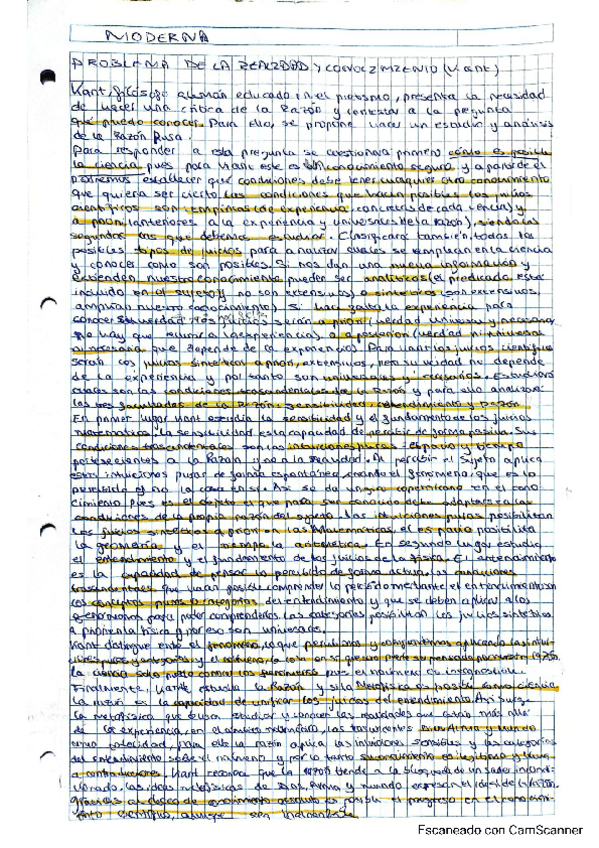 MODERNA
PROBLEMA DE LA REALIDAD y CONOCIMIENTO (Kant)
Kant, filósofo alemán educado en el pietismo, presenta la necesidad
de hacer una crítica de la Razón y contestar a la pregunta
qué puedo conocer. Para ello, se propone hacer un estudio y análisis
de la Razón Pura.
Para responder a esta pregunta se cuestionará primero cómo es posible
la ciencia pues para Kant este es un conocimiento seguro, y a partir de él
podremos establecer qué condiciones debe tener cualquier otro conocimiento
que quiera ser cierto. Las condiciones que hacen posibles los juicios
científicos son: empíricas (de experiencia, concretas de cada ciencia) y
a priori (anteriores a la experiencia y universales de la razón), siendo las
segundas las que debemos estudiar. Clasificará también, todos los
posibles tipos de juicios para analizar cuales se emplean en la ciencia
y conocer como son posibles. Si nos dan una nueva información y
extienden nuestro conocimiento pueden ser analíticos (el predicado está
incluido en el sujeto y no son extensivos) o sintéticos (son extensivos,
amplían nuestro conocimiento). Si hace falta la experiencia para
conocer su verdad los juicios serán a priori (verdad universal y necesaria,
no hay que recurrir a la experiencia) o a posteriori (verdad ni universal
ni necesaria que depende de la experiencia). Para Kant los juicios científicos
serán los juicios sintéticos a priori, extensivos, pero su verdad no depende
de la experiencia y por tanto son universales y necesarios. Estudiará
cuáles son las condiciones trascendentales de la Razón y para ello analizará
las tres facultades de la Razón: sensibilidad, entendimiento y Razón.
En primer lugar Kant estudia la sensibilidad y el fundamento de los juicios
matemáticos. La sensibilidad es la capacidad de percibir de forma pasiva. Sus
condiciones trascendentales son las intuiciones puras: espacio y tiempo
pertenecientes a la Razón y no a la realidad. Al percibir el sujeto aplica
estas intuiciones puras de forma espontánea, creando el fenómeno, que es lo
percibido y no la cosa en sí. Así se da un giro copernicano en el cono-
cimiento pues es el objeto el que para ser conocido debe adaptarse a las
condiciones de la propia razón del sujeto. Las intuiciones puras posibilitan
los juicios sintéticos a priori en las Matemáticas, el espacio posibilita
la geometría y el tiempo la aritmética. En segundo lugar estudia
el entendimiento y el fundamento de los juicios de la física. El entendimiento
es la capacidad de pensar lo percibido de forma activa. Las condiciones
trascendentales que hacen posible comprender lo percibido mediante el entendimiento son
los conceptos puros o categorías del entendimiento y que se deben aplicar a los
fenómenos para poder comprenderlos. Las categorías posibilitan los juicios sintéticos
a priori en la física y por eso son universales.
Kant distingue entre el fenómeno, lo que percibimos y comprendemos aplicando las intui-
ciones puras y categorías, y el noúmeno, la cosa en sí que no puede ser pensada por nuestra razón.
La ciencia solo puede conocer los fenómenos pues el noúmeno es incognoscible.
Finalmente, Kant estudia la Razón y si la Metafísica es posible como ciencia.
La razón es la capacidad de unificar los juicios del entendimiento. Así surge
la metafísica que busca estudiar y conocer las realidades que están más allá
de la experiencia, en el ámbito
como totalidad. la razón aplica las intuiciones sensibles y las categorías
del entendimiento sobre el noúmeno y por lo tanto su conocimiento es ilegítimo y lleva
a contradicciones. Kant reconoce que la razón tiende a la búsqueda de un saber incondi-
cionado, las ideas metafísicas de Dios, Alma y mundo expresan el ideal de la razón.
Gracias al deseo de conocimiento absoluto es posible el progreso en el conocimi-
ento científico, aunque sea inalcanzable.
Escaneado con CamScanner